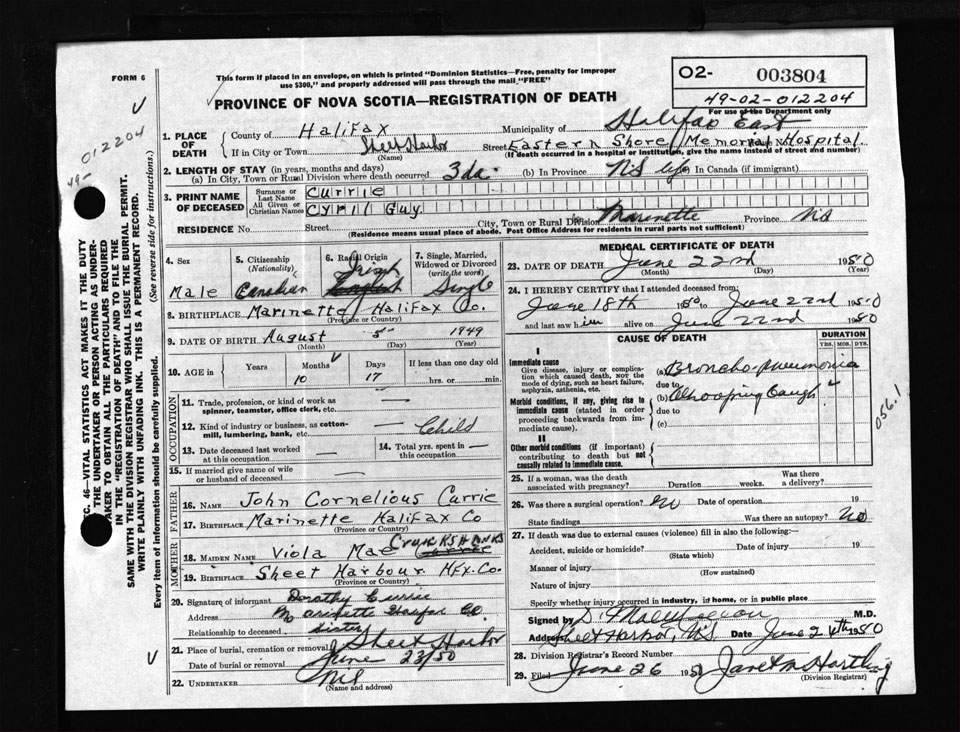 FORM 6
This form if placed in an envelope, on which is printed "Dominion Statistics—Free, penalty for improper
use $300," and properly addressed will pass through the mail "FREE"
PROVINCE OF NOVA SCOTIA—REGISTRATION OF DEATH
O2- 003804
49-02-012204
For use of the Department only
012204
49-
SEC. 46—VITAL STATISTICS ACT MAKES IT THE DUTY
OF THE UNDERTAKER OR PERSON ACTING AS UNDER-
TAKER TO OBTAIN ALL THE PARTICULARS REQUIRED
IN THE "REGISTRATION OF DEATH" AND TO FILE THE
SAME WITH THE DIVISION REGISTRAR WHO SHALL ISSUE THE BURIAL PERMIT.
WRITE PLAINLY WITH UNFADING INK. THIS IS A PERMANENT RECORD.
Every item of information should be carefully supplied. (See reverse side for instructions.)
1. PLACE OF DEATH County of Halifax Municipality of Halifax East
If in City or Town Sheet Harbor (Name) Street Eastern Shore Memorial Hospital
(If death occurred in a hospital or institution, give the name instead of street and number)
2. LENGTH OF STAY (in years, months and days)
(a) In City, Town or Rural Division where death occurred 3 da. (b) In Province NS life (c) In Canada (if immigrant)
3. PRINT NAME OF DECEASED Surname or Last Name CURRIE
All Given or Christian Names CYRIL GUY
RESIDENCE No. Street City, Town or Rural Division Marinette Province NS
(Residence means usual place of abode. Post Office Address for residents in rural parts not sufficient)
4. Sex Male
5. Citizenship (Nationality) Canadian
6. Racial Origin Irish English
7. Single, Married, Widowed or Divorced (write the word) Single
8. BIRTHPLACE Marinette Halifax Co.
(Province or Country)
9. DATE OF BIRTH August 5 1949
(Month) (Day) (Year)
10. AGE in Years Months 10 Days 17 If less than one day old
hrs. or min.
OCCUPATION
11. Trade, profession, or kind of work as spinner, teamster, office clerk, etc. —
12. Kind of industry or business, as cotton-mill, lumbering, bank, etc. Child
13. Date deceased last worked at this occupation —
14. Total yrs. spent in this occupation —
15. If married give name of wife or husband of deceased —
FATHER
16. NAME John Cornelious Currie
17. BIRTHPLACE Marinette Halifax Co
(Province or Country)
MOTHER
18. MAIDEN NAME Viola Mae CRUIKSHANKS
19. BIRTHPLACE Sheet Harbour Hfx. Co.
(Province or Country)
20. Signature of informant Dorothy Currie
Address Marinette Halifax Co
Relationship to deceased sister
21. Place of burial, cremation or removal Sheet Harbor
Date of burial or removal June 23/50
22. UNDERTAKER Nil
(Name and address)
MEDICAL CERTIFICATE OF DEATH
23. DATE OF DEATH June 22nd 1950
(Month) (Day) (Year)
24. I HEREBY CERTIFY that I attended deceased from:
June 18th 1950 to June 22nd 1950
and last saw him alive on June 22nd 1950
CAUSE OF DEATH DURATION
YRS. MOS. DYS.
I
Immediate cause
Give disease, injury or complication which caused death, NOT the mode of dying, such as heart failure, asphyxia, asthenia, etc.
(a) Broncho-pneumonia
due to
Morbid conditions, if any, giving rise to immediate cause (stated in order proceeding backwards from immediate cause).
(b) Whooping Cough
due to
(c)
056.1
II
Other morbid conditions (if important) contributing to death but not causally related to immediate cause.
25. If a woman, was the death associated with pregnancy? Duration weeks. Was there a delivery?
26. Was there a surgical operation? No Date of operation 19
State findings Was there an autopsy? No
27. If death was due to external causes (violence) fill in also the following:—
Accident, suicide or homicide? Date of injury 19
(State which)
Manner of injury
(How sustained)
Nature of injury
Specify whether injury occurred in industry, in home, or in public place
Signed by D. M.D.
Address Sheet Harbor, N.S. Date June 24th 1950
28. Division Registrar's Record Number
29. Filed June 26 1950 Janet M Hartling
(Division Registrar)